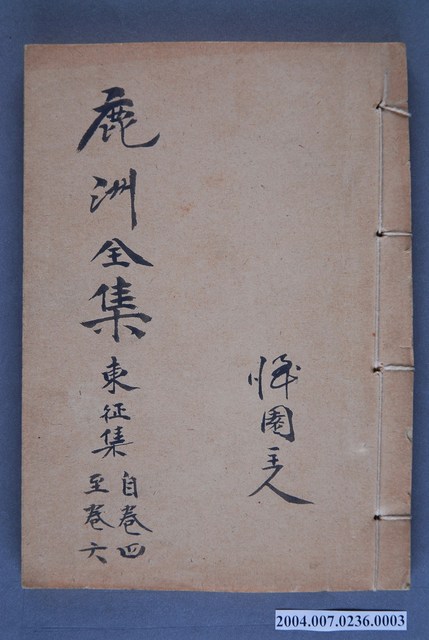 鹿洲全集
東征集
自卷四
至卷六
園主人
2004.007.0236.0003